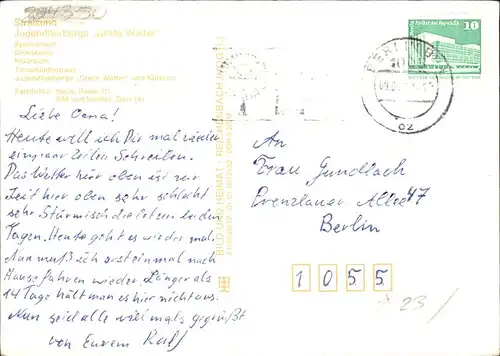 Stralsund
Jugendherberge „Grete Walter"
Speiseraum
Clubraum
Jugendherberge „Grete Walter" und Kubitzer
BILD UND HEIMAT REICHENBACH
Liebe Oma!
Heute will ich Dir mal wieder
ein paar Zeilen Schreiben.
Das Wetter hier oben ist zur
Zeit hier oben sehr schlecht
sehr Stürmisch die letzen beiden
Tagen. Heute geht es wieder mal.
Nun muß ich erst einmal nach
Hause fahren wieder. Länger als
14 Tage hält man es hier nicht aus.
Nun seid alle viel mals gegrüßt
von Eurem Ralf
10
BERLIN
OZ
An
Frau Gundlach
Prenzlauer Allee 47
Berlin
1055
23/